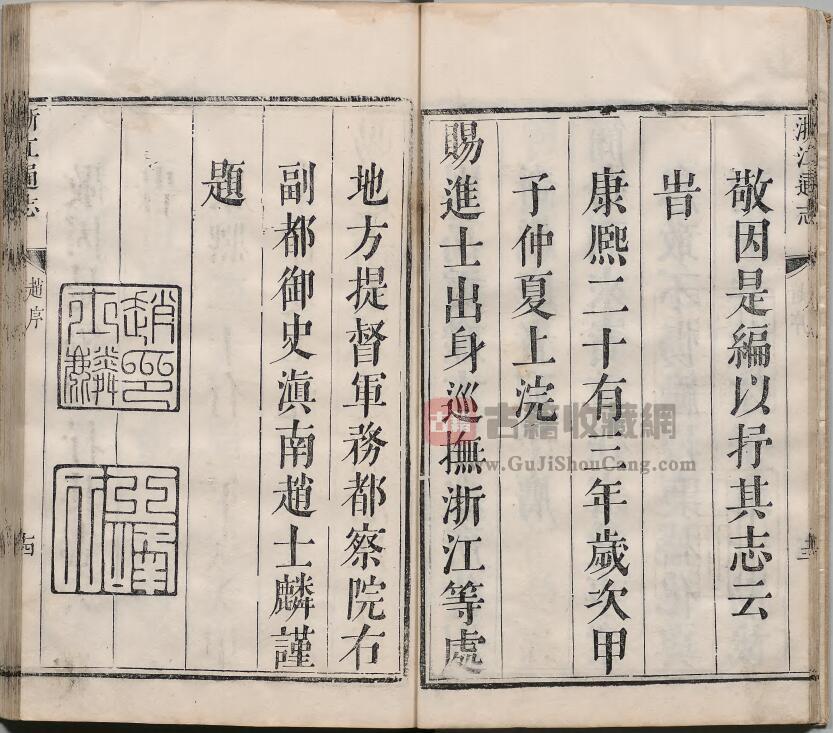 浙江通志
敬因是編以抒其志云
旹
康熙二十有三年歲次甲
子仲夏上浣
賜進士出身巡撫浙江等處
地方提督軍務都察院右
副都御史滇南趙士麟謹
題
浙江通志
趙序
十四
趙印
士麟
古籍
古籍收藏網
www.GuJiShouCang.com